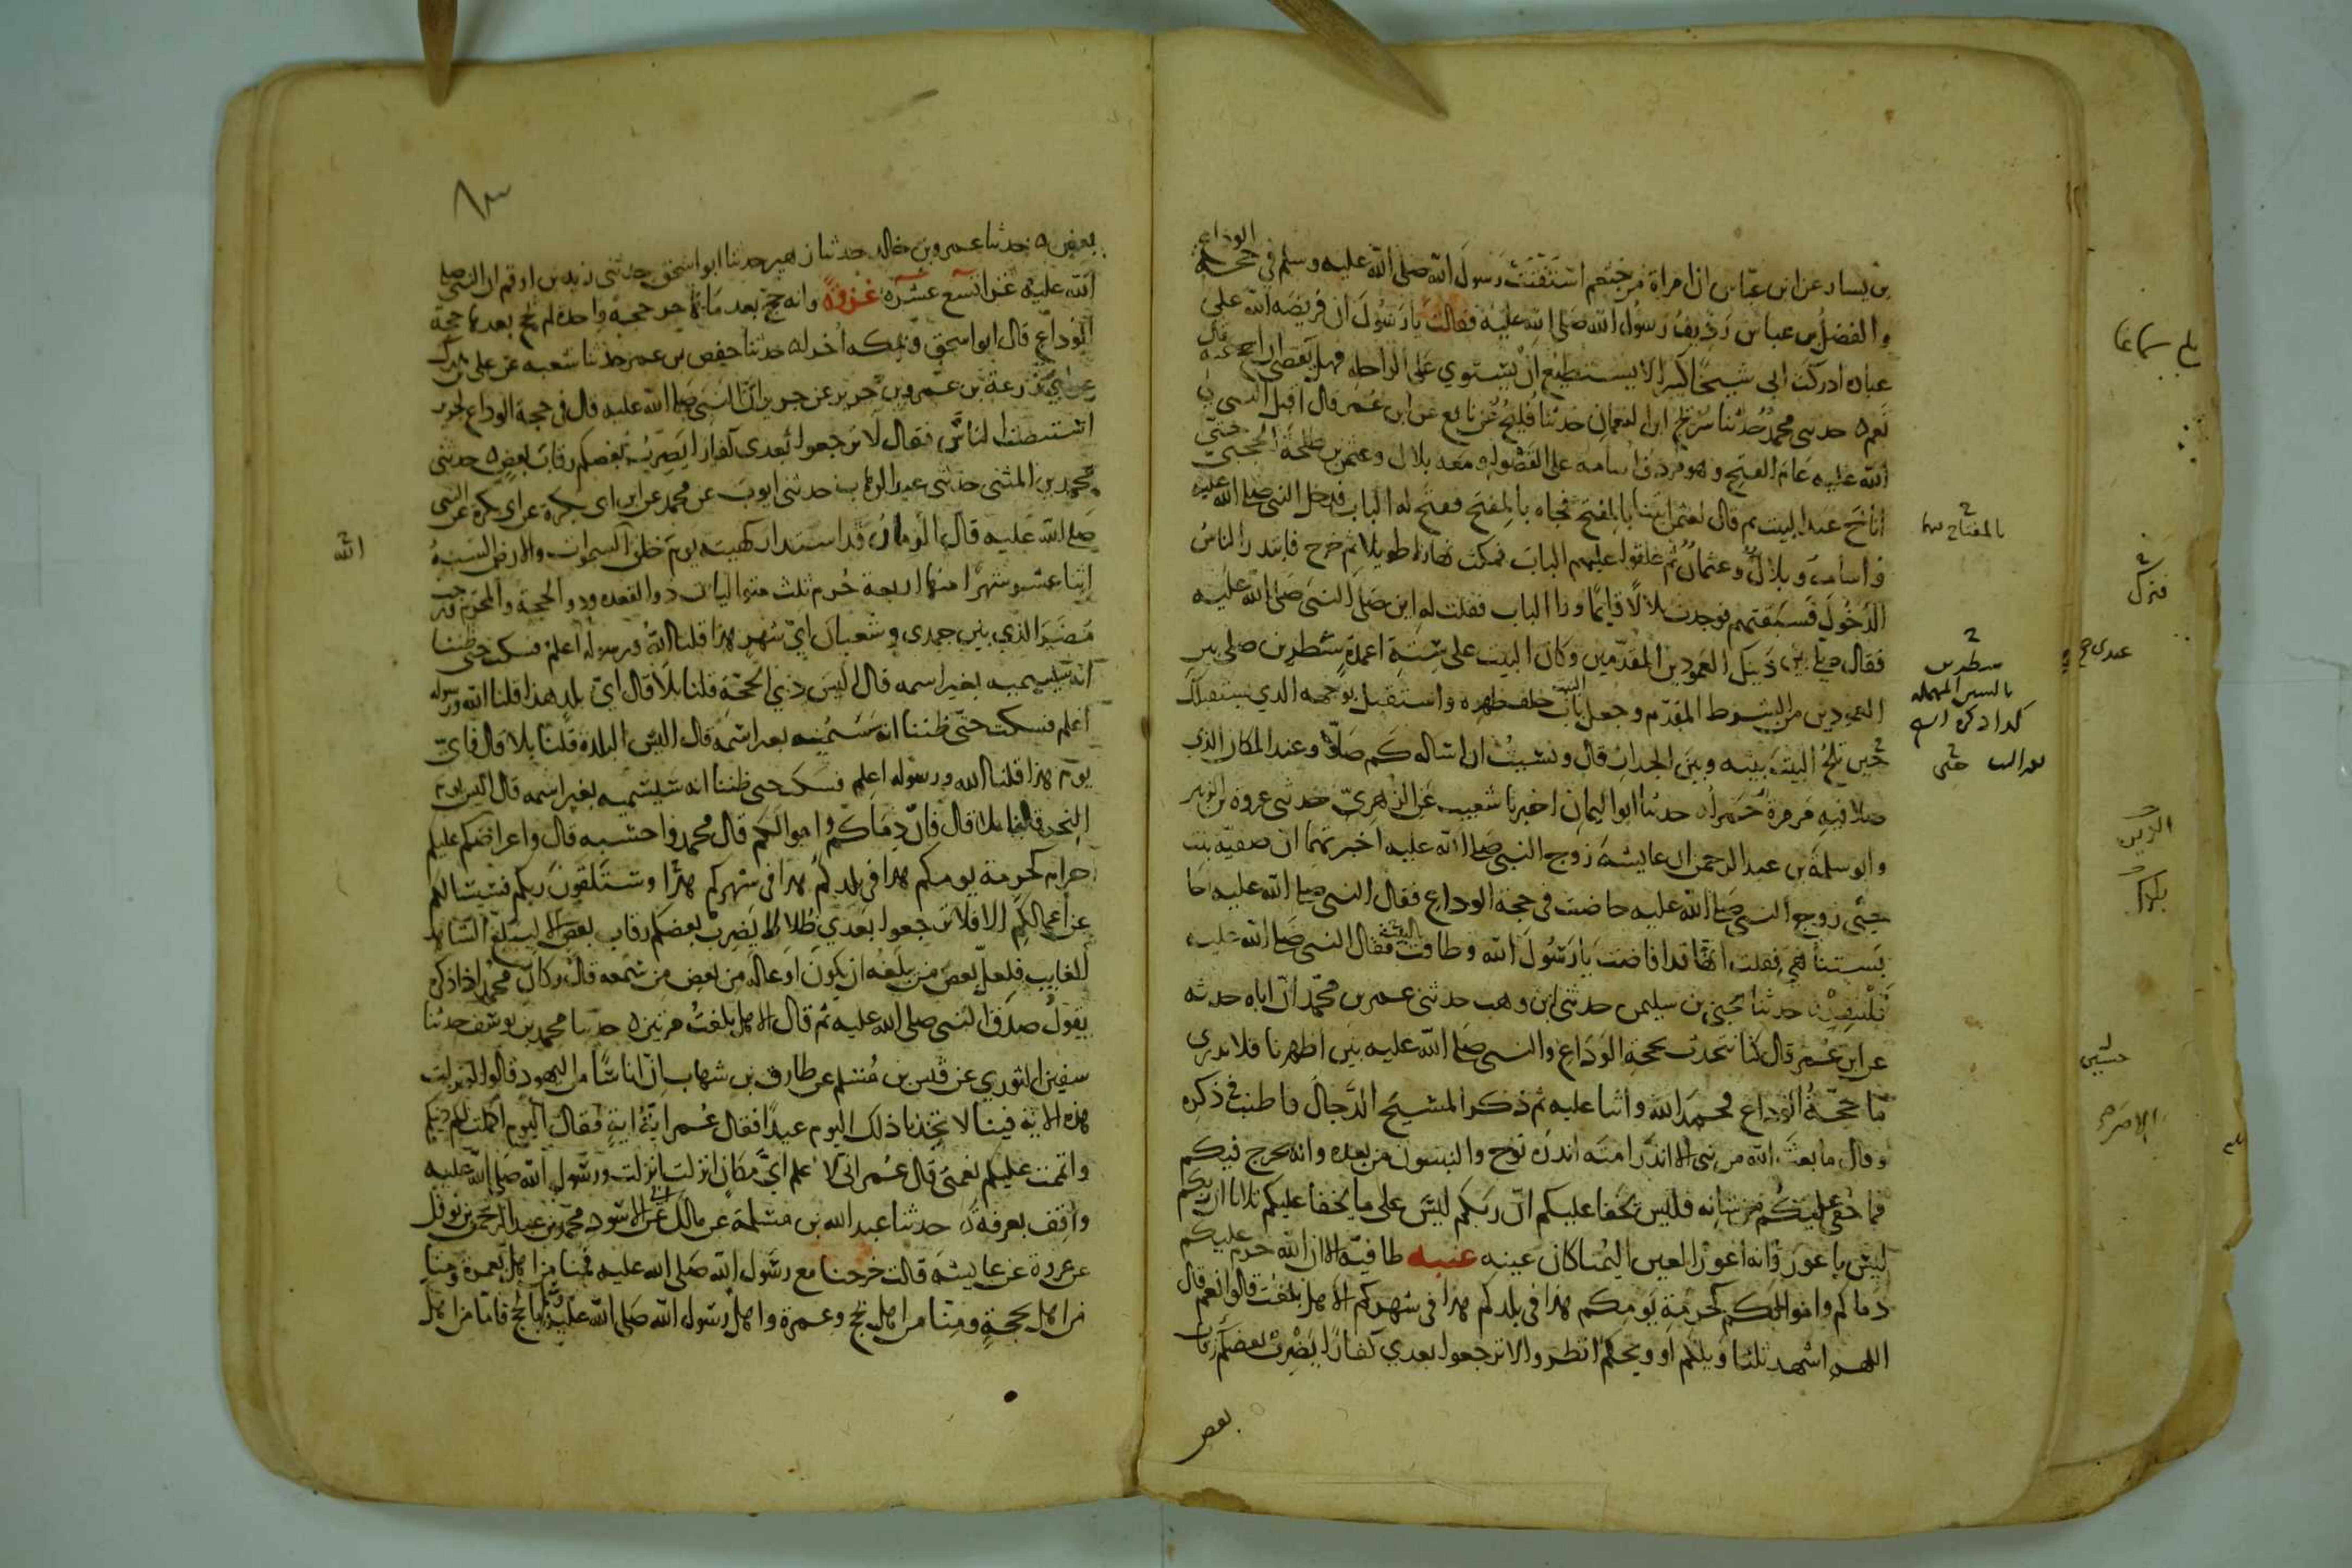 بن يسار عن ابن عباس ان امراة من خثعم استفتت رسول الله صلى الله عليه وسلم في حجة الوداع
والفضل بن عباس رديف رسول الله صلى الله عليه فقالت يا رسول ان فريضة الله على
عباده ادركت ابي شيخا كبيرا لا يستطيع ان يستوي على الراحلة فهل يقضي ان احج عنه قال
نعم ه حدثني محمد حدثنا سريج ابن النعمان حدثنا فليح عن نافع عن ابن عمر قال اقبل النبي صلى
الله عليه عام الفتح وهو مردف اسامة على القصواء ومعه بلال وعثمن بن طلحة الحجبي حتى
اناخ عند البيت ثم قال لعثمن ايتنا بالمفتح فجاه بالمفتح ففتح له الباب فدخل النبي صلى الله عليه
واسامة وبلال وعثمان ثم غلقوا عليهم الباب فمكث نهارا طويلا ثم خرج فابتدر الناس
الدخول فسبقتهم فوجدت بلالا قايما ورا الباب فقلت له اين صلى النبي صلى الله عليه
فقال صلى بين ذينك العمودين المقدمين وكان البيت على ستة اعمدة شطرين صلى بين
العمودين من الشوط المقدم وجعل باب البيت خلف ظهره واستقبل بوجهه الذي يستقبلك
حين تلج البيت بينه وبين الجدار قال ونسيت ان اساله كم صلى وعند المكان الذي
صلا فيه مرمرة حمراه حدثنا ابو اليمان اخبرنا شعيب عن الزهري حدثني عروة بن الزبير
وابو سلمة بن عبد الرحمن ان عايشة زوج النبي صلى الله عليه اخبرتهما ان صفية بنت
حيي زوج النبي صلى الله عليه حاضت في حجة الوداع فقال النبي صلى الله عليه احا
بستنا هي فقلت انها قد افاضت يا رسول الله وطافت بالبيت فقال النبي صلى الله عليه
فلتنفره حدثنا يحيى بن سليمن حدثني ابن وهب حدثني عمر بن محمد ان اباه حدثه
عن ابن عمر قال كنا نتحدث بحجة الوداع والنبي صلى الله عليه بين اظهرنا فلا ندري
ما حجة الوداع فحمد الله واثنا عليه ثم ذكر المسيح الدجال فاطنب في ذكره
وقال ما بعث الله من نبي الا انذر امته انذره نوح والنبيون من بعده وانه يخرج فيكم
فما خفي عليكم من شانه فليس يخفا عليكم ان ربكم ليس على ما يخفا عليكم ثلاثا ان ربكم
ليس باعور وانه اعور العين اليمنا كان عينه عنبه طافية الا ان الله حرم عليكم
دماكم واموالكم كحرمة يومكم هذا في بلدكم هذا في شهركم الا هل بلغت قالوا نعم قال
اللهم اشهد ثلثا ويلكم او ويحكم انظروا لا ترجعوا بعدي كفارا يضرب بعضكم رقاب
بعض
بالمفتاح
شطرين
بالسين المهملة
حتى
الله
بعض ه حدثنا عمرو بن خالد حدثنا زهير حدثنا ابو اسحق حدثني زيد بن ارقم ان النبي صلى
الله عليه غزا تسع عشره غزوة وانه حج بعد ما هاجر حجة واحدة لم يحج بعدها حجة
الوداع قال ابو اسحق وبمكه اخراه حدثنا حفص بن عمر حدثنا شعبه عن علي بن مدرك
عن ابي زرعة بن عمرو بن جرير عن جرير ان النبي صلى الله عليه قال في حجة الوداع لجرير
استنصت الناس فقال لا ترجعوا بعدي كفارا يضرب بعضكم رقاب بعض ه حدثني
محمد بن المثنى حدثني عبد الوهاب حدثني ايوب عن محمد عن ابن ابي بكرة عن ابي بكرة عن النبي
صلى الله عليه قال الزمان قد استدار كهيته يوم خلق السموات والارض السنة
اثنا عشر شهرا منها اربعة حرم ثلث متواليات ذو القعده وذو الحجة والمحرم ورجب
مضر الذي بين جمدى وشعبان اي شهر هذا قلنا الله ورسوله اعلم فسكت حتى ظننا
انه سيسميه بغير اسمه قال اليس ذي الحجة قلنا بلا قال اي بلد هذا قلنا الله ورسوله
اعلم فسكت حتى ظننا انه سيسميه بغير اسمه قال اليس البلدة قلنا بلا قال فاي
يوم هذا قلنا الله ورسوله اعلم فسكت حتى ظننا انه سيسميه بغير اسمه قال اليس يوم
النحر قلنا بلا قال فان دماكم واموالكم قال محمد واحسبه قال واعراضكم عليكم
حرام كحرمة يومكم هذا في بلدكم هذا في شهركم هذا وستلقون ربكم فسيسالكم
عن اعمالكم الا فلا ترجعوا بعدي ضلالا يضرب بعضكم رقاب بعض الا ليبلغ الشاهد
الغايب فلعل بعض من يبلغه ان يكون اوعا له من بعض من سمعه قال وكان محمد اذا ذكره
يقول صدق النبي صلى الله عليه ثم قال الا هل بلغت مرتين ه حدثنا محمد بن يوسف حدثنا
سفين الثوري عن قيس بن مسلم عن طارق بن شهاب ان اناسا من اليهود قالوا لو نزلت
هذه الاية فينا لاتخذنا ذلك اليوم عيدا فقال عمر اية اية فقال اليوم اكملت لكم دينكم
واتممت عليكم نعمتي قال عمر اني لاعلم اي مكان انزلت انزلت ورسول الله صلى الله عليه
واقف بعرفة ه حدثنا عبد الله بن مسلمة عن مالك عن ابي الاسود محمد بن عبد الرحمن بن نوفل
عن عروة عن عايشة قالت خرجنا مع رسول الله صلى الله عليه فمنا من اهل بعمرة ومنا
من اهل بحجة ومنا من اهل بحج وعمرة واهل رسول الله صلى الله عليه وسلم بالحج فاما من اهل